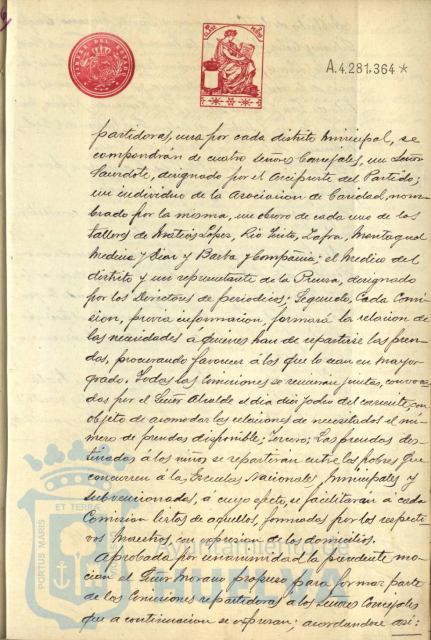 TIMBRE DEL ESTADO
A.4.281.364*
partidoras, una por cada distrito Municipal, se
compondrán de cuatro Señores Concejales, un Señor
Sacerdote, designado por el Arcipreste del Partido;
un individuo de la Asociacion de Caridad, nom-
brado por la misma, un obrero de cada uno de los
talleres de Matias Lopez, Rio Tinto, Zafra, Montagut
Medina y Diaz y Barba y Compañia; el Medico del
distrito y un representante de la Prensa, designado
por los Directores de periodicos; Segundo, Cada Comi-
sion, previa informacion, formará la relacion de
las necesidades á quienes han de repartirse las pren-
das, procurando favorecer á los que lo sean en mayor
grado. Todas las Comisiones se reunirán juntas, convoca-
das por el Señor Alcalde el dia del corriente, con
objeto de acomodar las relaciones de necesitados al nú-
mero de prendas disponible; Tercero; Las prendas des-
tinadas á los niños se repartirán entre los pobres que
concurren á las Escuelas Nacionales, Municipales y
subvencionadas, á cuyo efecto, se facilitarán á cada
Comision listas de aquellos, formadas por los respecti-
vos Maestros, con expresion de los domicilios.
Aprobada por unanimidad la precedente mo-
cion el Señor Morano propuso para formar parte
de las Comisiones repartidoras á los Señores Concejales
que á continuacion se expresan; acordandose asi:
PORTUS MARIS ET TERRÆ
Ayuntamiento de
HUELVA